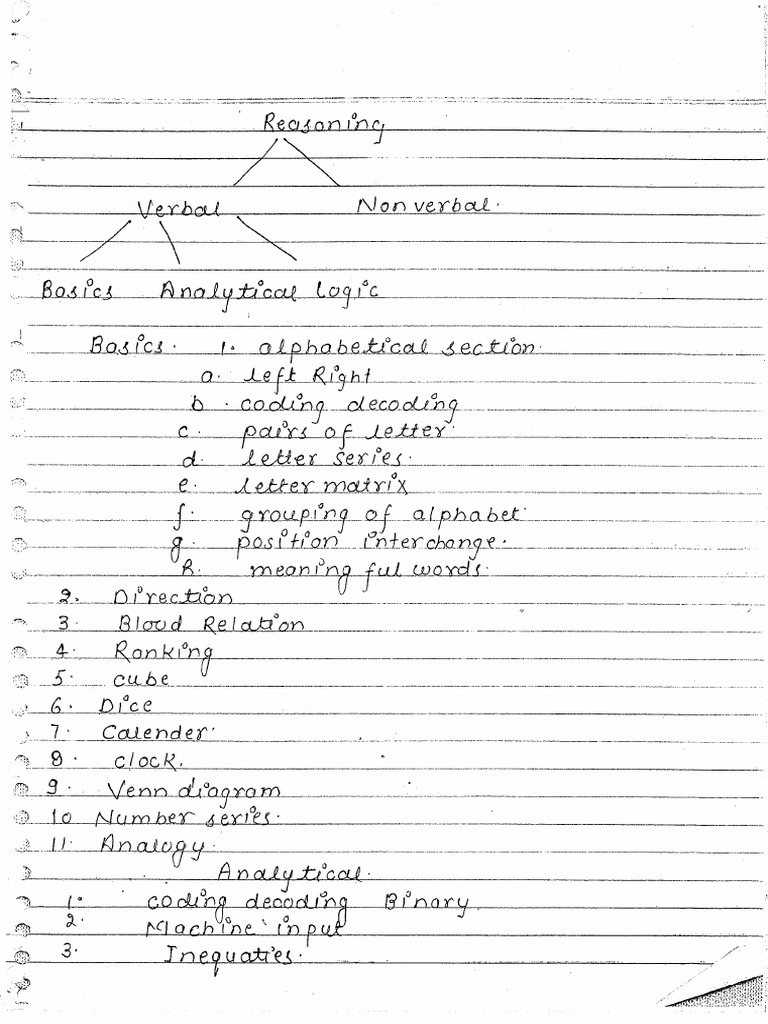 Reasoning
Verbal Nonverbal.
Basics Analytical Logic
Basics. 1. alphabetical section.
a. left Right
b. coding decoding
c. pairs of letter.
d. letter series.
e. letter matrix
f. grouping of alphabet
g. position interchange.
h. meaning ful words.
2. Direction
3. Blood Relation
4. Ranking
5. cube
6. Dice
7. Calender.
8. clock.
9. Venn diagram
10 Number series.
11. Analogy.
Analytical.
1. coding decoding Binary.
2. Machine input
3. Inequaties.